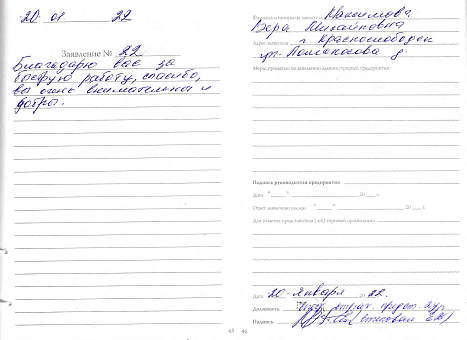 20 01 22
Заявление № 22
Благодарю вас за
работу, спасибо,
вы очень внимательны и
добры.
45
Фамилия и инициалы заявителя Максимова
Вера Михайловна
Адрес заявителя г. Красноборск
ул. Ломоносова д.
Меры, принятые по заявлению администрацией предприятия:
Подпись руководителя предприятия
Дата « » 20 г.
Ответ заявителю послан « » 20 г.
Для отметок представителя торговой организации
Дата 20 января 2022.
Должность
Подпись
46